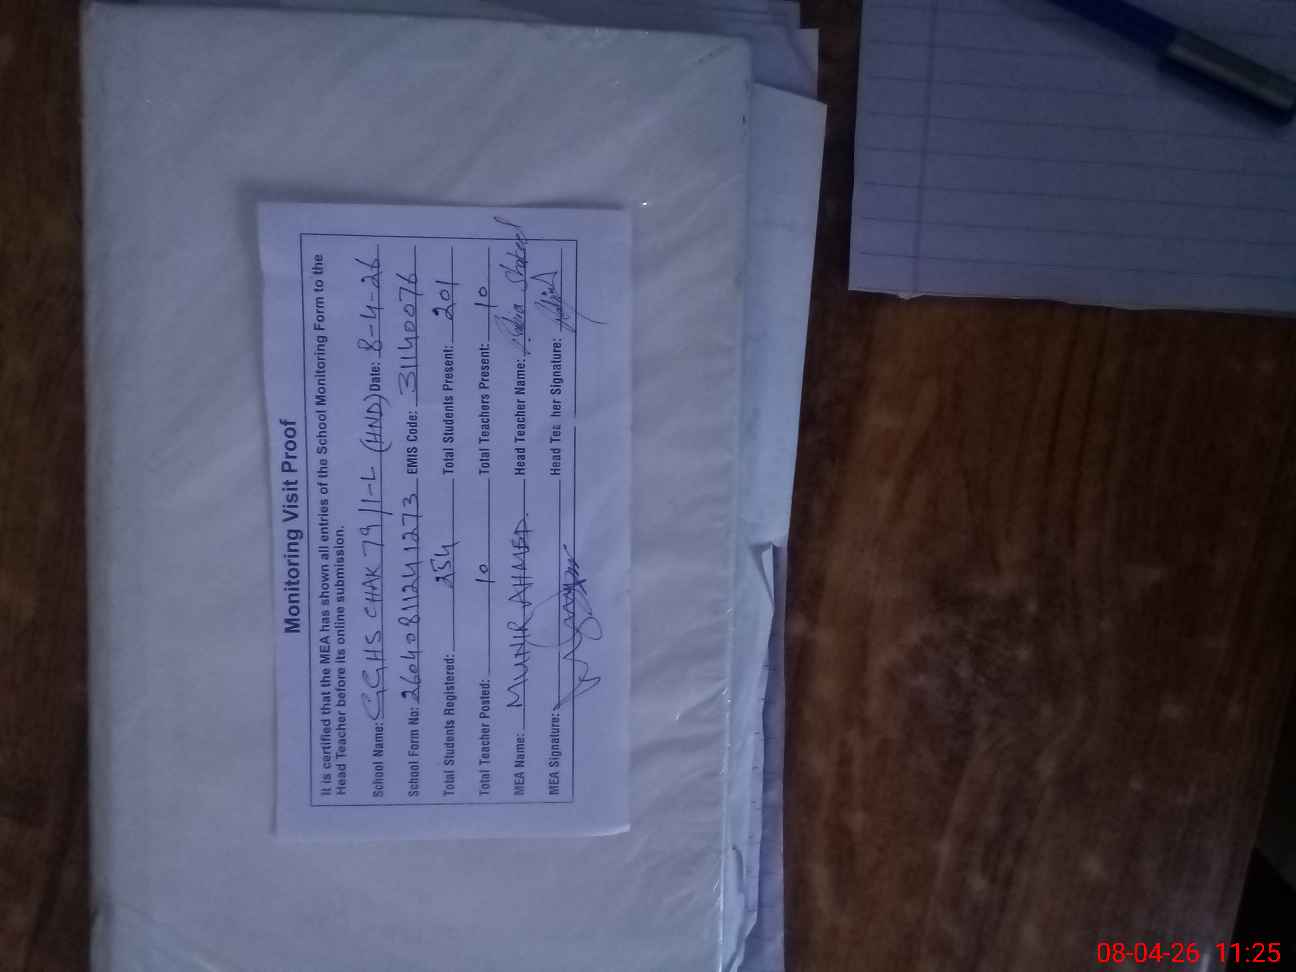 Monitoring Visit Proof
It is certified that the MEA has shown all entries of the School Monitoring Form to the
Head Teacher before its online submission.
School Name: GGHS CHAK 79/1-L (HND) Date: 8-4-26
School Form No: 26040811241273 EMIS Code: 31140076
Total Students Registered: 254 Total Students Present: 201
Total Teacher Posted: 10 Total Teachers Present: 10
MEA Name: MUNIR AHMED. Head Teacher Name: Shakeel
MEA Signature: Head Teacher Signature:
08-04-26 11:25